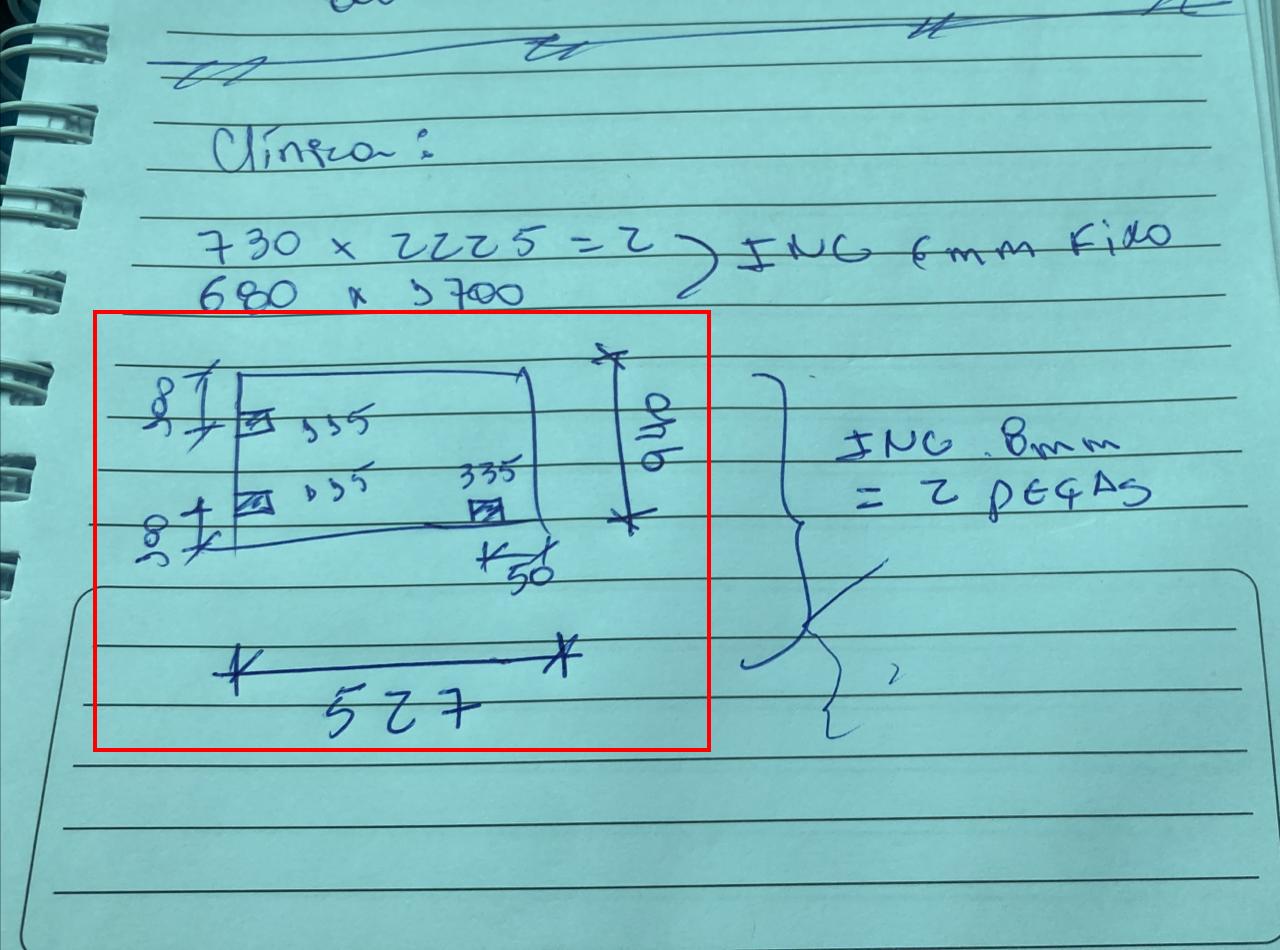 Clínica:
730 x 2225 = 2
680 x 1700
ING 6mm Fixo
335
335
335
940
50
527
ING. 8mm
= 2 PEÇAS